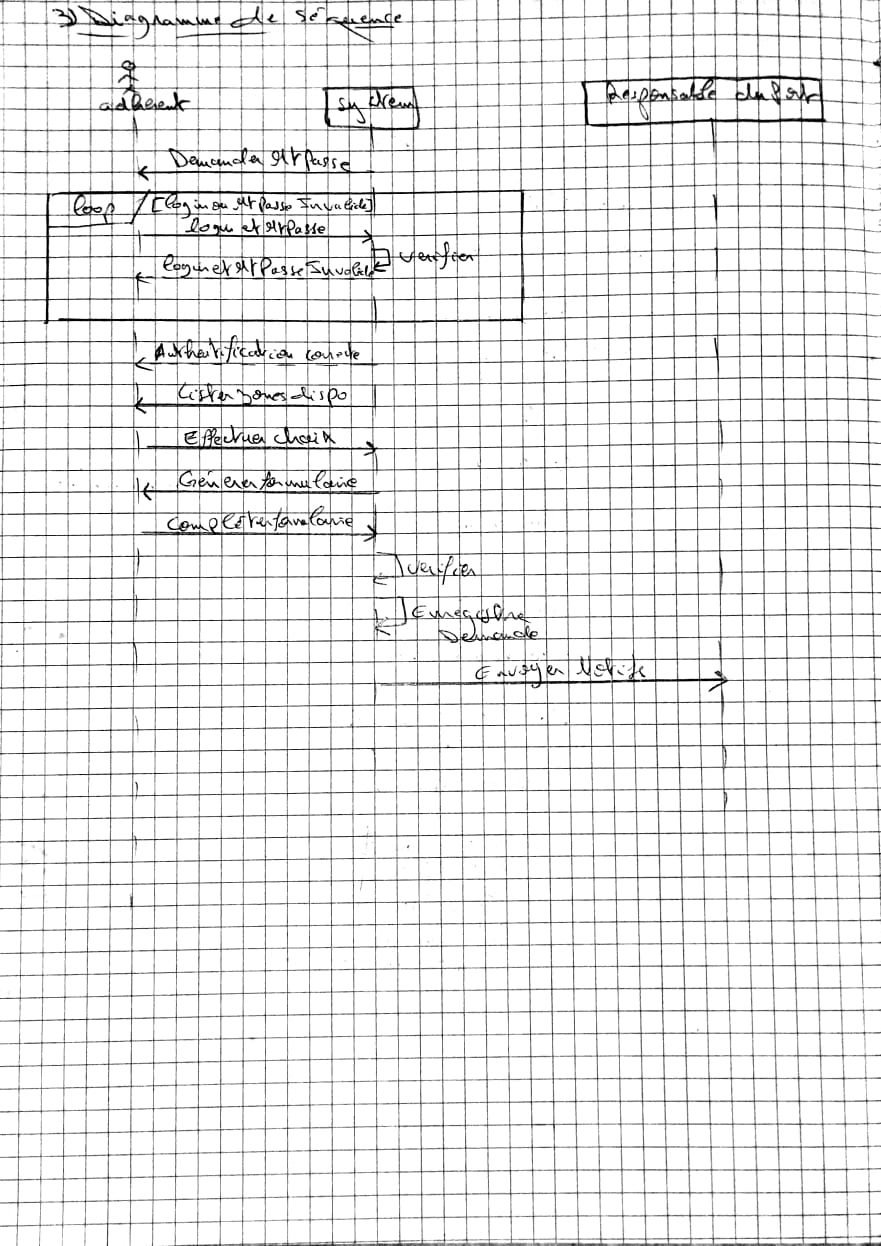 3) Diagramme de séquence
adherent
system
Responsable du Port
Demander Mt Passe
loop
[login ou Mt Passe Invalide]
login et Mt Passe
verifier
login et Mt Passe Invalide
Authentification correcte
Lister zones dispo
Effectuer choix
Générer formulaire
Completer formulaire
verifier
Enregistre
Demande
Envoyer Notif